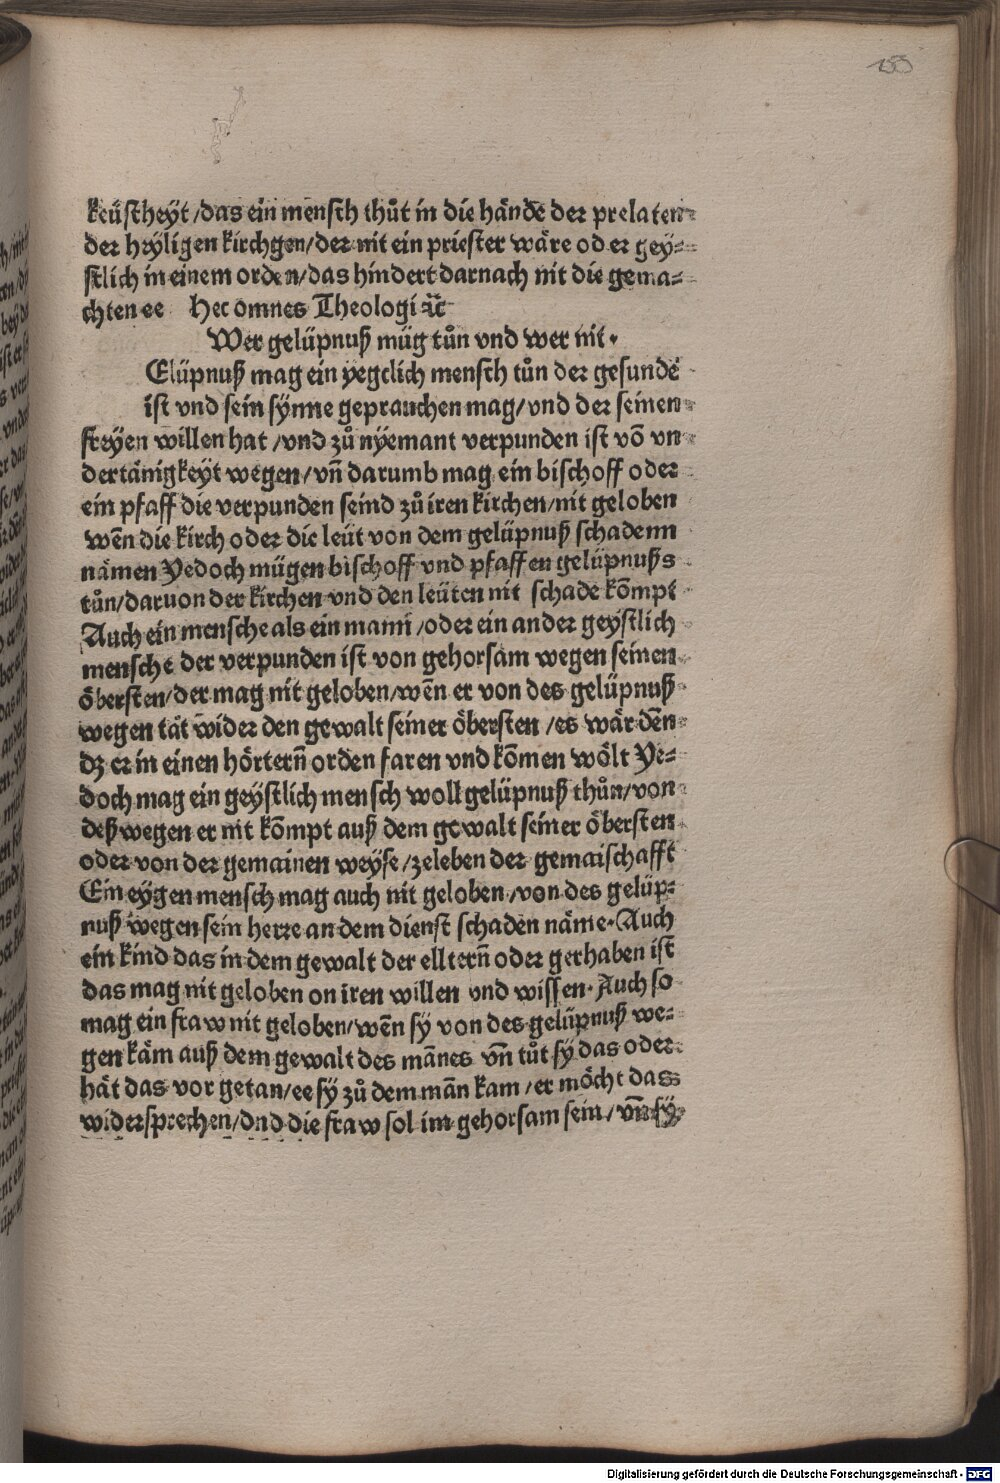 153
keüscheyt /das ein mensch thůt in die hände der prelaten
der heyligen kirchgen/der nit ein priester wäre oder gey⸗
stlich in einem orden/das hindert darnach nit die gema⸗
chten ee Hec omnes Theologi ꝛc̃
Wer gelüpnuß müg tůn vnd wer nit·
Elüpnuß mag ein yegclich mensch tůn der gesunde
ist vnd sein sÿnne geprauchen mag/vnd der seinen
freyen willen hat /vnd zů nÿemant verpunden ist võ vn
dertänigkeyt wegen/vñ darumb mag ein bischoff oder
ein pfaff die verpunden seind zů iren kirchen/nit geloben
wẽn die kirch oder die leüt von dem gelüpnuß schadenn
nämen Yedoch mügen bischoff vnd pfaffen gelüpnußs
tůn/daruon der kirchen vnd den leüten nit schade kõmpt
Auch ein mensche als ein mann /oder ein ander geystlich
mensche der verpunden ist von gehorsam wegen seinen
öbersten/der mag nit geloben/wẽn er von des gelüpnuß
wegen tät wider den gewalt seiner öbersten /es wär dẽn
dz er in einen hörterñ orden faren vnd kõmen wölt Ye⸗
doch mag ein geystlich mensch woll gelüpnuß thůn/von
deß wegen er nit kõmpt auß dem gewalt seiner öbersten
oder von der gemainen weyse/zeleben der gemaischafft
Ein eygen mensch mag auch nit geloben/von des gelüp⸗
nuß wegen sein herre an dem dienst schaden näme·Auch
ein kind das in dem gewalt der ellterñ oder gerhaben ist
das mag nit geloben on iren willen vnd wissen·Auch so
mag ein fraw nit geloben/wẽn sÿ von des gelüpnuß we⸗
gen käm auß dem gewalt des mãnes vñ tůt sÿ das oder
hät das vor getan/ee sÿ zů dem mãn kam/er möcht das
widersprechen/vnd die fraw sol im gehorsam sein/vñ sÿ
Digitalisierung gefördert durch die Deutsche Forschungsgemeinschaft - DFG